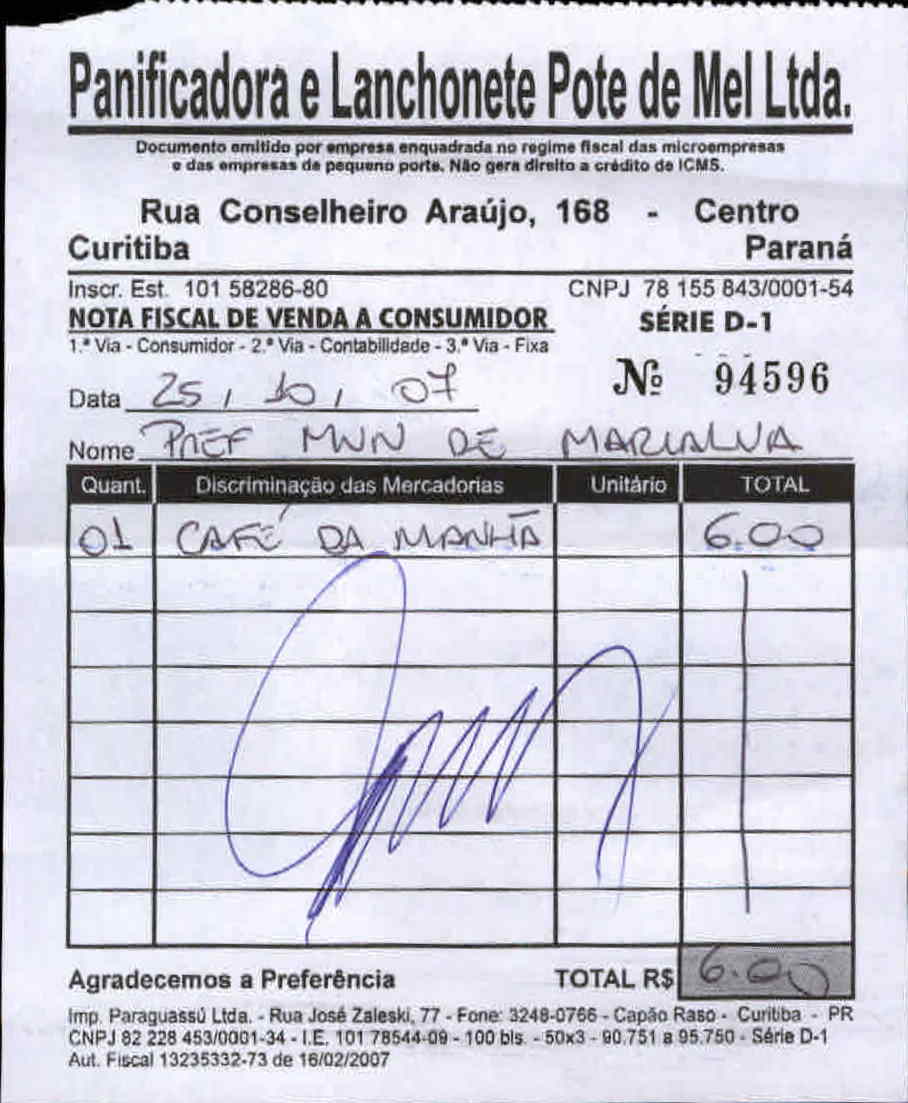 Panificadora e Lanchonete Pote de Mel Ltda.
Documento emitido por empresa enquadrada no regime fiscal das microempresas
e das empresas de pequeno porte. Não gera direito a crédito de ICMS.
Rua Conselheiro Araújo, 168 - Centro
Curitiba Paraná
Inscr. Est. 101 58286-80 CNPJ 78 155 843/0001-54
NOTA FISCAL DE VENDA A CONSUMIDOR SÉRIE D-1
1.ª Via - Consumidor - 2.ª Via - Contabilidade - 3.ª Via - Fixa
Nº 94596
Data 25 / 10 / 07
Nome PREF MUN DE MARIALVA
Quant. Discriminação das Mercadorias Unitário TOTAL
01 CAFÉ DA MANHÃ 6.00
Agradecemos a Preferência TOTAL R$ 6.00
Imp. Paraguassú Ltda. - Rua José Zaleski, 77 - Fone: 3248-0766 - Capão Raso - Curitiba - PR
CNPJ 82 228 453/0001-34 - I.E. 101 78544-09 - 100 bls. - 50x3 - 90.751 a 95.750 - Série D-1
Aut. Fiscal 13235332-73 de 16/02/2007